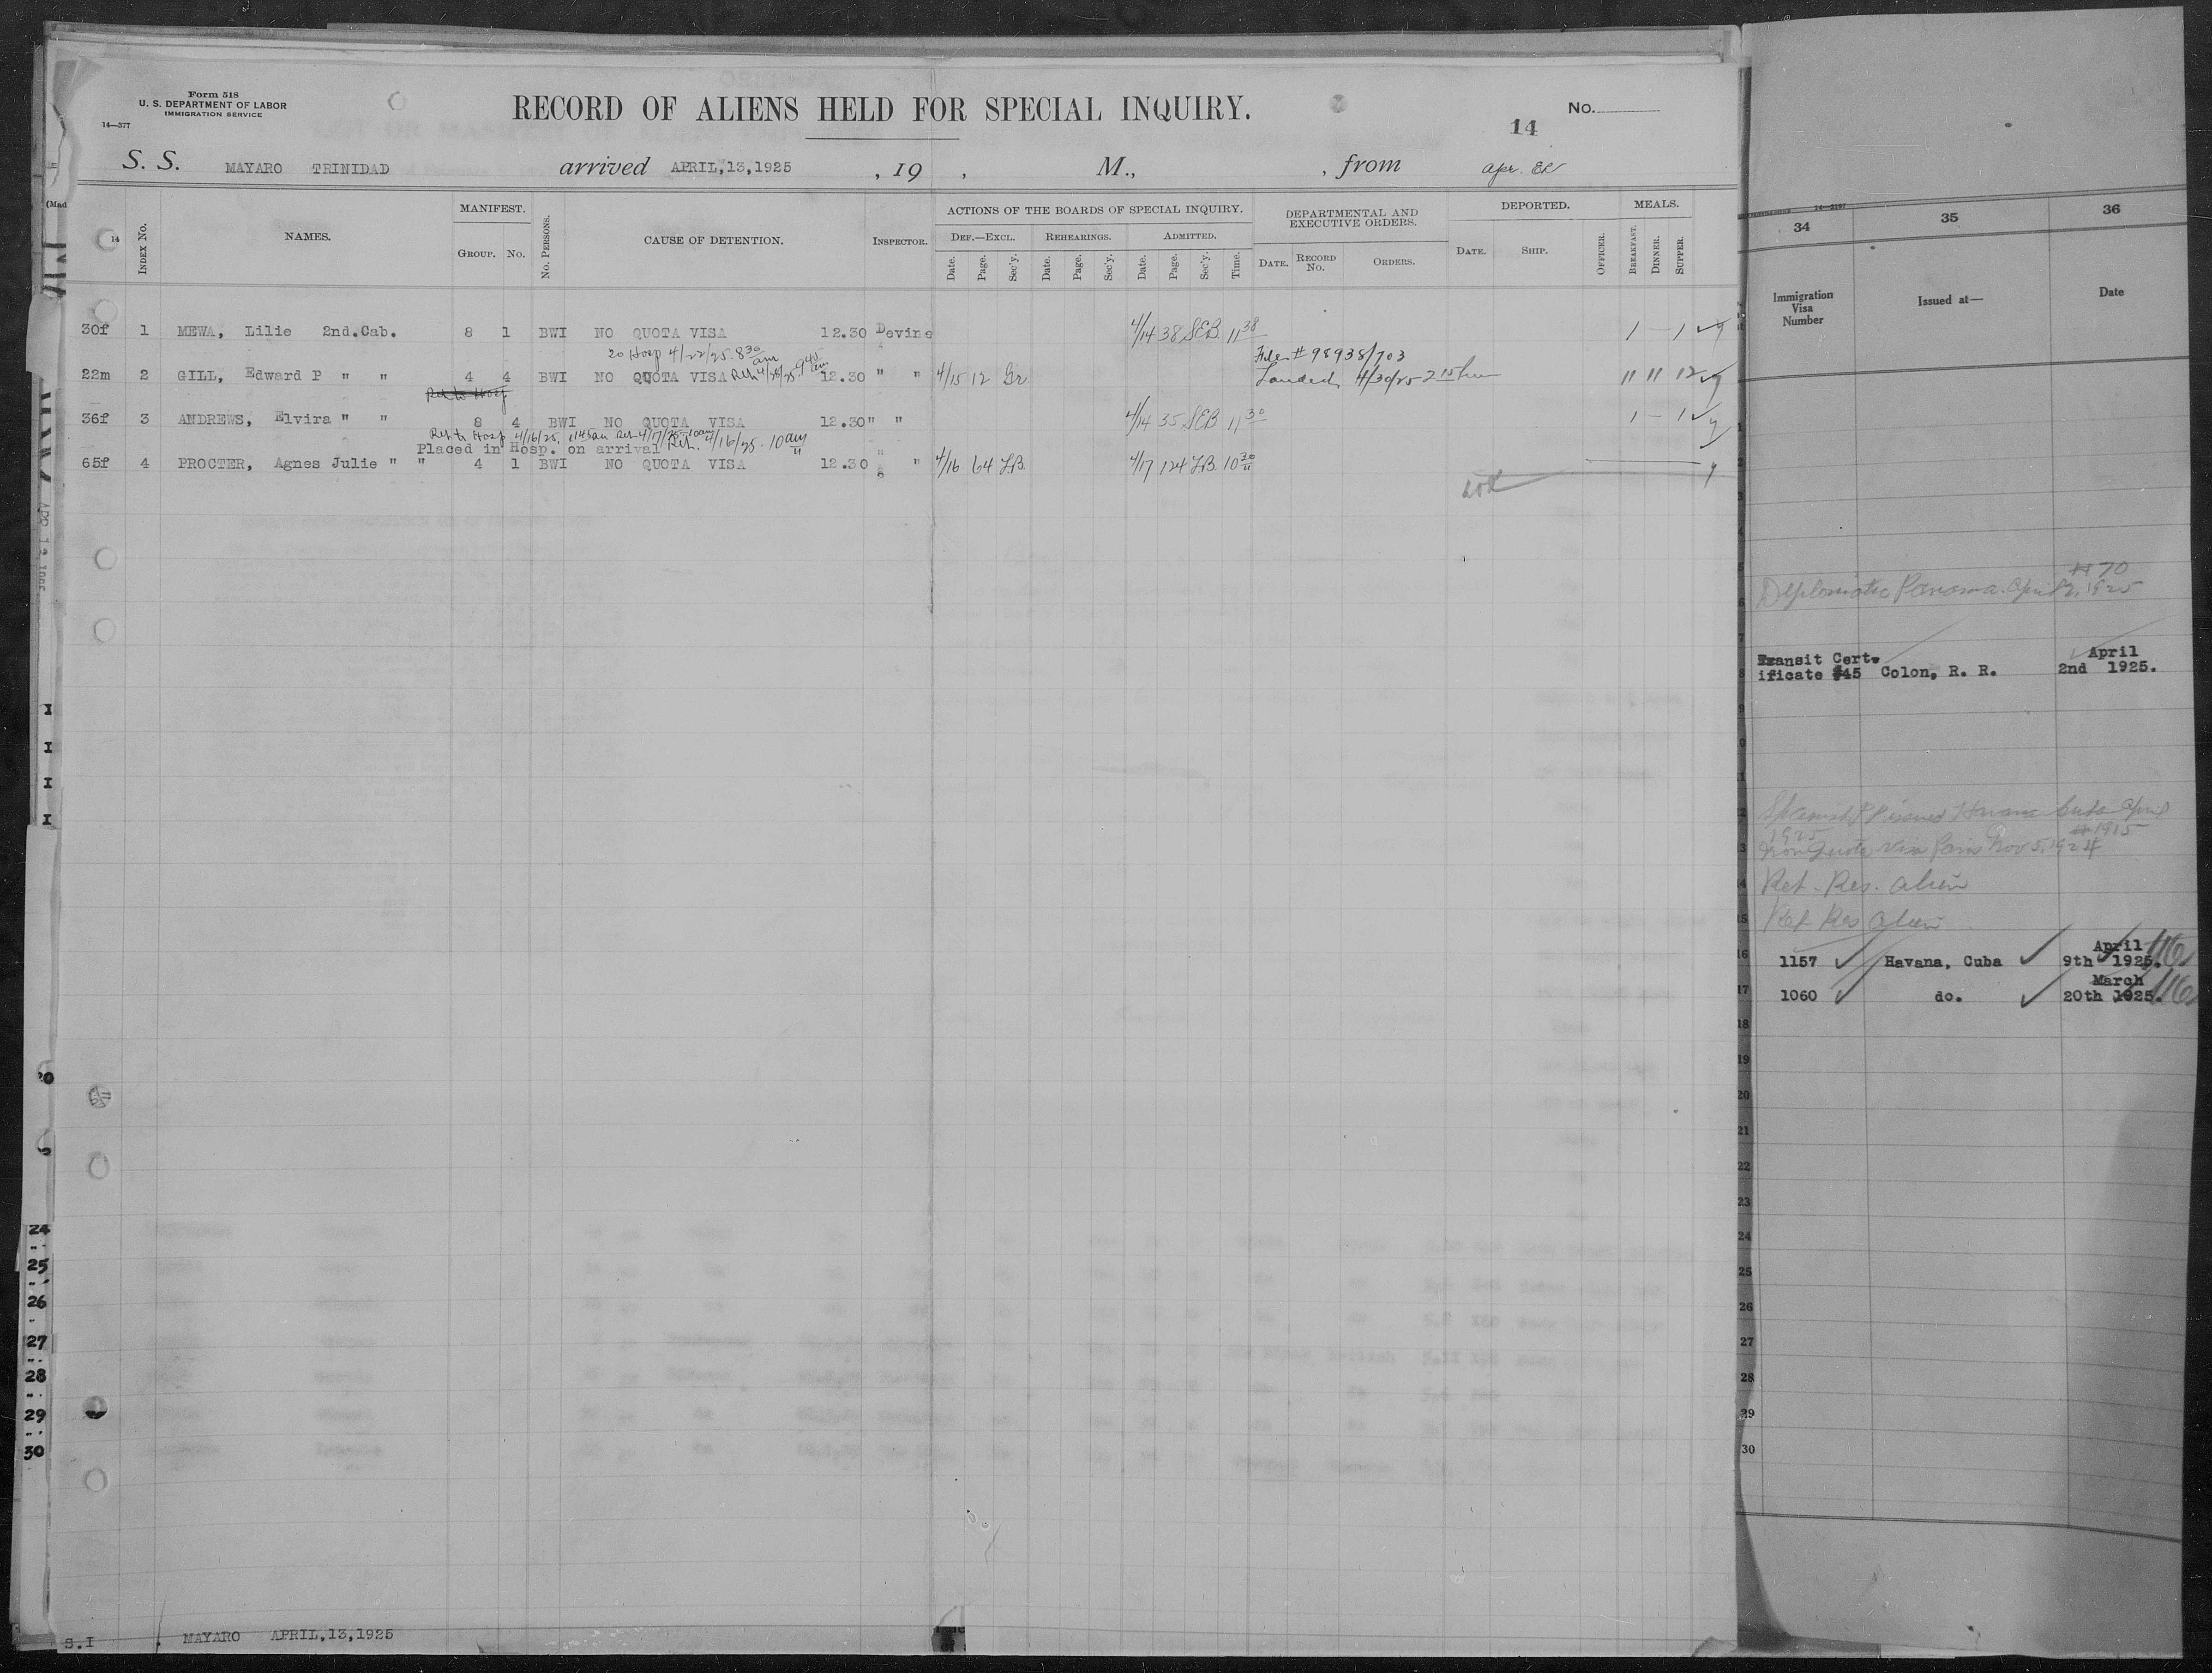 Form 518
U. S. DEPARTMENT OF LABOR
IMMIGRATION SERVICE
14—377
RECORD OF ALIENS HELD FOR SPECIAL INQUIRY.
No.
14
S. S. MAYARO TRINIDAD arrived APRIL,13,1925 , 19 , M., , from
(Mad
14
INDEX NO.
NAMES.
MANIFEST.
GROUP. NO.
No. PERSONS.
CAUSE OF DETENTION.
INSPECTOR.
ACTIONS OF THE BOARDS OF SPECIAL INQUIRY.
DEF.—EXCL. REHEARINGS. ADMITTED.
Date. Page. Sec'y. Date. Page. Sec'y. Date. Page. Sec'y. Time.
DEPARTMENTAL AND EXECUTIVE ORDERS.
DATE. RECORD NO. ORDERS.
DEPORTED.
DATE. SHIP. OFFICER.
MEALS.
BREAKFAST. DINNER. SUPPER.
30f 1 MEWA, Lilie 2nd.Cab. 8 1 BWI NO QUOTA VISA 12.30 Devine 4/14 38 SEB 11 38 1 — 1
Hosp 4/22/25 8 30 am
File # 98938/703
22m 2 GILL, Edward P " " 4 4 BWI NO QUOTA VISA Ret 4/28/25 9 45 am 12.30 " " 4/15 12 Gr Landed 4/30/25 2 15 pm 11 11 12
Ret to Hosp
36f 3 ANDREWS, Elvira " " 8 4 BWI NO QUOTA VISA 12.30 " " 4/14 35 SEB 11 30 1 — 1
Ret to Hosp 4/16/25, 1145am Ret 4/17/25 10am
Placed in Hosp. on arrival Ret. 4/16/25 - 10 am "
65f 4 PROCTER, Agnes Julie " " 4 1 BWI NO QUOTA VISA 12.30 " " 4/16 64 LB 4/17 124 LB 10 30
S.I MAYARO APRIL,13,1925
34 35 36
14—2187
Immigration Visa Number
Issued at—
Date
# 70
Diplomatic Panama April 2, 1925
Transit Cert- April
ificate #45 Colon, R. R. 2nd 1925.
Spanish PP issued Havana Cuba April
1925 # 1915
Non Quota Visa Paris Nov 5, 1924
Ret. Res. alien
Ret Res alien
April
1157 Havana, Cuba 9th 1925.
March
1060 do. 20th 1925.
16
17
18
19
20
21
22
23
24
25
26
27
28
29
30
24
25
26
27
28
29
30